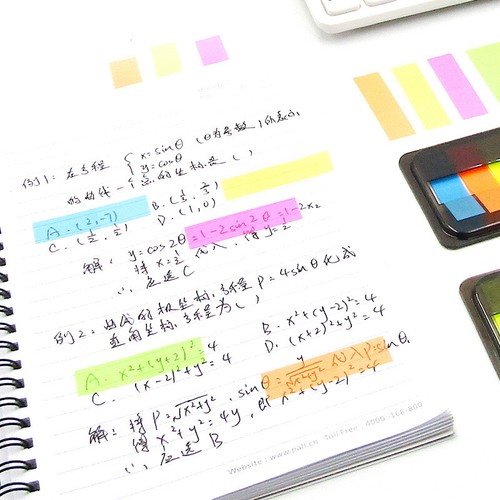 例1: 在方程 { x=sinθ y=cosθ (θ为参数)所表示
的曲线一个点的坐标是( )
A.(2,-7) B.(1/3, 2/3)
C.(1/2, 1/2) D.(1,0)
解: y=cos2θ=1-2sin2θ=1-2x2
将 x=1/2 代入, 得y=1/2
∴应选C
例2: 极坐标方程 P=4sinθ化成
直角坐标方程为( )
A. x²+(y+2)²=4 B. x²+(y-2)²=4
C. (x-2)²+y²=4 D. (x+2)²+y²=4
解: 将P=√x²+y², sinθ=y/√x²+y² 代入P=4sinθ,
得x²+y²=4y, 即x²+(y-2)²=4
∴应选B
Website: www.pali.cn Toll Free: 4000-168-800